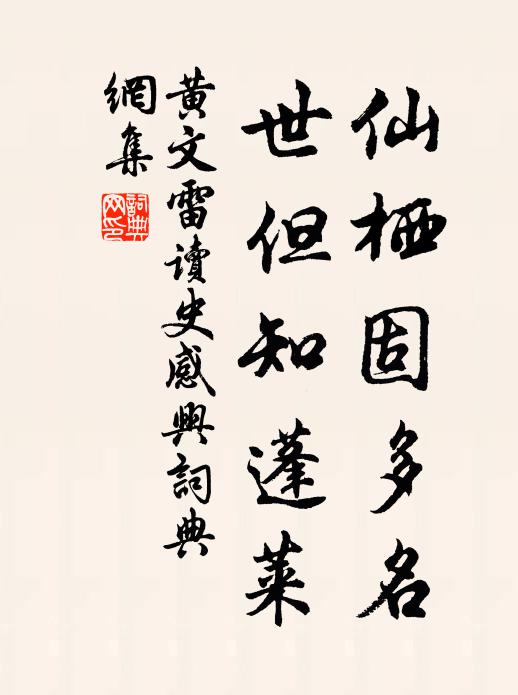 仙栖固多名
世但知蓬莱
黄文雷讀史感興詞典
網集
詞典
网印